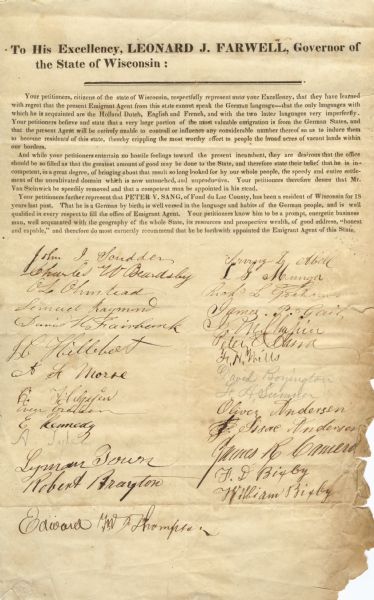 To His Excellency, LEONARD J. FARWELL, Governor of
the State of Wisconsin:
Your petitioners, citizens of the state of Wisconsin, respectfully represent unto your Excellency, that they have learned
with regret that the present Emigrant Agent from this state cannot speak the German language—that the only languages with
which he is acquainted are the Holland Dutch, English and French, and with the two latter languages very imperfectly.
Your petitioners believe and state that a very large portion of the most valuable emigration is from the German States, and
that the present Agent will be entirely unable to controll or influence any considerable number thereof so as to induce them
to become residents of this state, thereby crippling the most worthy effort to people the broad acres of vacant lands within
our borders.
And while your petitioners entertain no hostile feelings toward the present incumbent, they are desirous that the office
should be so filled as that the greatest amount of good may be done to the State, and therefore state their belief that he is in-
competent, in a great degree, of bringing about that much so long looked for by our whole people, the speedy and entire settle-
ment of the uncultivated domain which is now untouched, and unproductive. Your petitioners therefore desire that Mr.
Van Steinwick be speedily removed and that a competent man be appointed in his stead.
Your petitioners further represent that PETER V. SANG, of Fond du Lac County, has been a resident of Wisconsin for 18
years last past. That he is a German by birth is well versed in the language and habits of the German people, and is well
qualified in every respect to fill the office of Emigrant Agent. Your petitioners know him to be a prompt, energetic business
man, well acquainted with the geography of the whole State, its resources and prospective wealth, of good address, "honest
and capable," and therefore do most earnestly recommend that he be forthwith appointed the Emigrant Agent of this State.
John J. Scudder
Charles W Beardsley
C. L. Olmstead
Samuel Raymond
James H Fairbanck
H. Hillebert
A H Morse
E Kennedy
A
Lyman Town
Robert Brayton
Edward Thompson
Munger
James
F. H. Wills
David Bovington
Sumner
Oliver Andersen
Isac Andersen
James R Camero
F. D Bixby
William Bixby